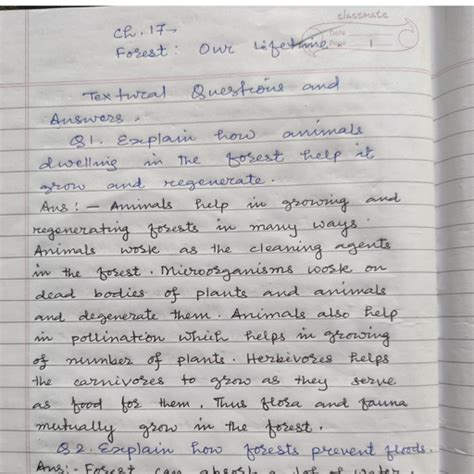 classmate
Date
Page 1
Ch. 17→
Forest: Our Lifetime
Textural Questions and
Answers.
Q1. Explain how animals
dwelling in the forest help it
grow and regenerate.
Ans:— Animals help in growing and
regenerating forests in many ways.
Animals work as the cleaning agents
in the forest. Microorganisms work on
dead bodies of plants and animals
and degenerate them. Animals also help
in pollination which helps in growing
of number of plants. Herbivores helps
the carnivores to grow as they serve
as food for them. Thus flora and fauna
mutually grow in the forest.
Q2. Explain how forests prevent floods.
Ans:- Forest can absorb a lot of water